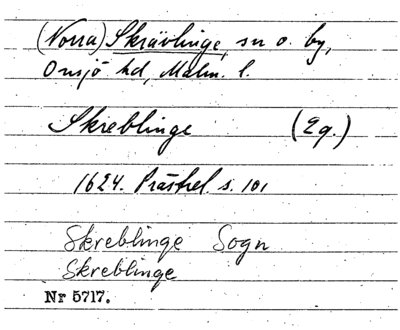 (Norra) Skrävlinge, sn o. by,
Onsjö hd, Malm. l.
Skreblinge (Eg.)
1624. Prästrel. s. 101
Skreblinge Sogn
Skreblinge
Nr 5717.